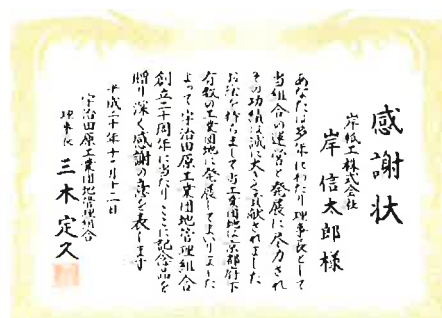 感謝状
岸紙工株式会社
岸信太郎様
あなたは多年にわたり理事長として
当組合の運営と発展に尽力され
その功績は誠に大きく貢献されました
お陰を持ちまして当工業団地は京都府下
有数の工業団地に発展してまいりました
よって宇治田原工業団地管理組合
創立二十周年に当たりここに記念品を
贈り深く感謝の意を表します
平成二十年十二月十二日
宇治田原工業団地管理組合
理事長 三木定久